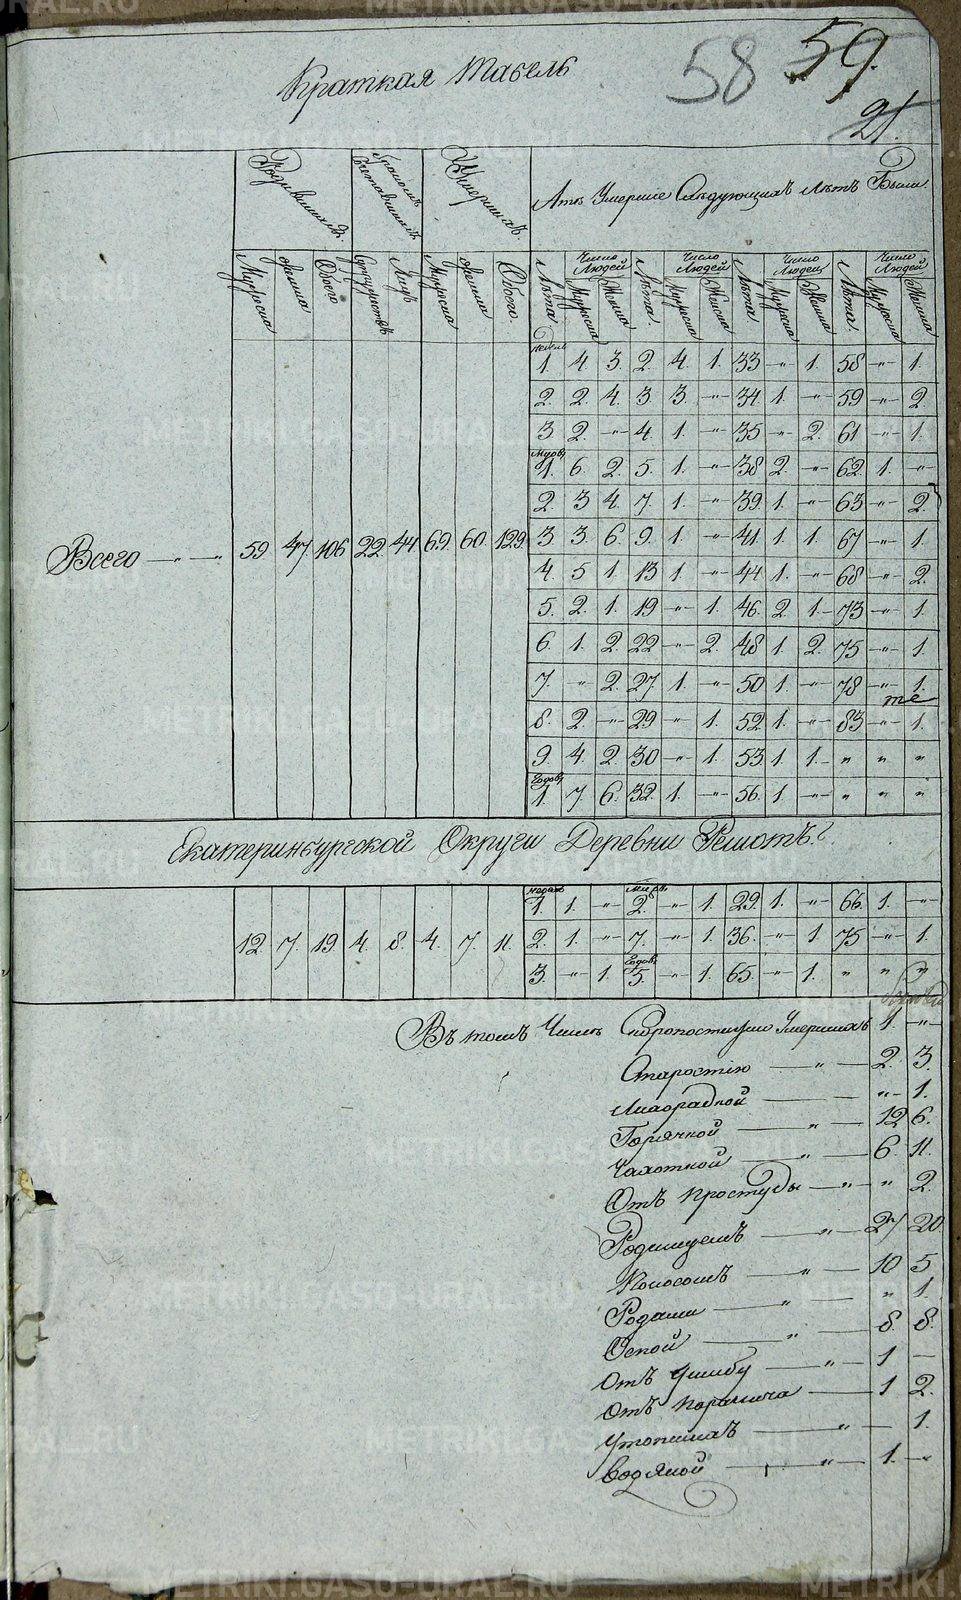 58 59.
21.
Краткая Табель
Родившихся. Бракомъ сочетавшихся Умершихъ А те Умершие Следующихъ летъ Были
Мужеска женска Обоего Супружествъ Лицъ Мужеска женска Обоего. Лета Число Людей Мужеска Женска Лета. Число Людей Мужеска Женска Лета Число Людей Мужеска Женска Лета. Число Людей Мужеска Женска
недель
1. 4. 3. 2. 4. 1. 33 -"- 1. 58 -"- 1.
2. 2. 4. 3 3. -"- 34 1. -"- 59 -"- 2
3 2. -"- 4. 1. -"- 35 -"- 2. 61 -"- 1.
1. 6. 2. 5. 1. -"- 38 2. -"- 62. 1. -"-
2. 3 4. 7. 1. -"- 39. 1. -"- 63 -"- 2.
Всего -"- 59 47 106 22 44 69. 60. 129. 3 3. 6. 9. 1. -"- 41. 1. 1. 67 -"- 1.
4. 5 1. 13 1 -"- 44 1. -"- 68 -"- 2.
5. 2. 1. 19 -"- 1. 46. 2. 1. 73 -"- 1.
6. 1. 2. 22 -"- 2. 48 1. 2. 75 -"- 1.
7. " 2. 27 1. -"- 50 1. -"- 78 -"- 1.
8. 2. -"- 29 -"- 1. 52. 1. -"- 83 -"- 1.
9. 4. 2. 30 -"- 1. 53 1. 1. " " "
Годовъ
1. 7. 6. 32. 1. -"- 56. 1 -"- " " "
Екатеринбургской Округи Деревни
12. 7. 19 4. 8. 4. 7. 11.
недель
1. 1. -"- 2. -"- 1. 29. 1. -"- 66. 1. -"-
2. 1. -"- 7. -"- 1. 36. -"- 1 75 -"- 1.
Годовъ
3. -"- 1. 5. -"- 1. 65. -"- 1. " " "
Въ томъ Числе Скоропостижно Умершихъ 1. -"-
Старостію -"- 2. 3.
Лихорадкой "- 1.
Горячкой -"- 12 6.
Чахоткой -"- 6. 11.
Отъ простуды -"- " 2.
Родимцемъ -"- 27 20
Поносомъ -"- 10 5
Родами -"- " 1.
Оспой -"- 8. 8.
Отъ Ушибу -"- 1 —
Отъ 1 2.
-"- 1.
Водяной -"- 1. -"-